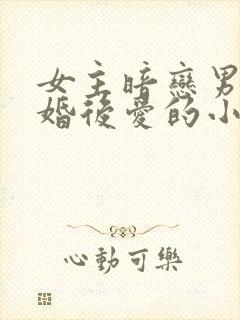 女主暗戀男
婚後愛的小
心動可樂